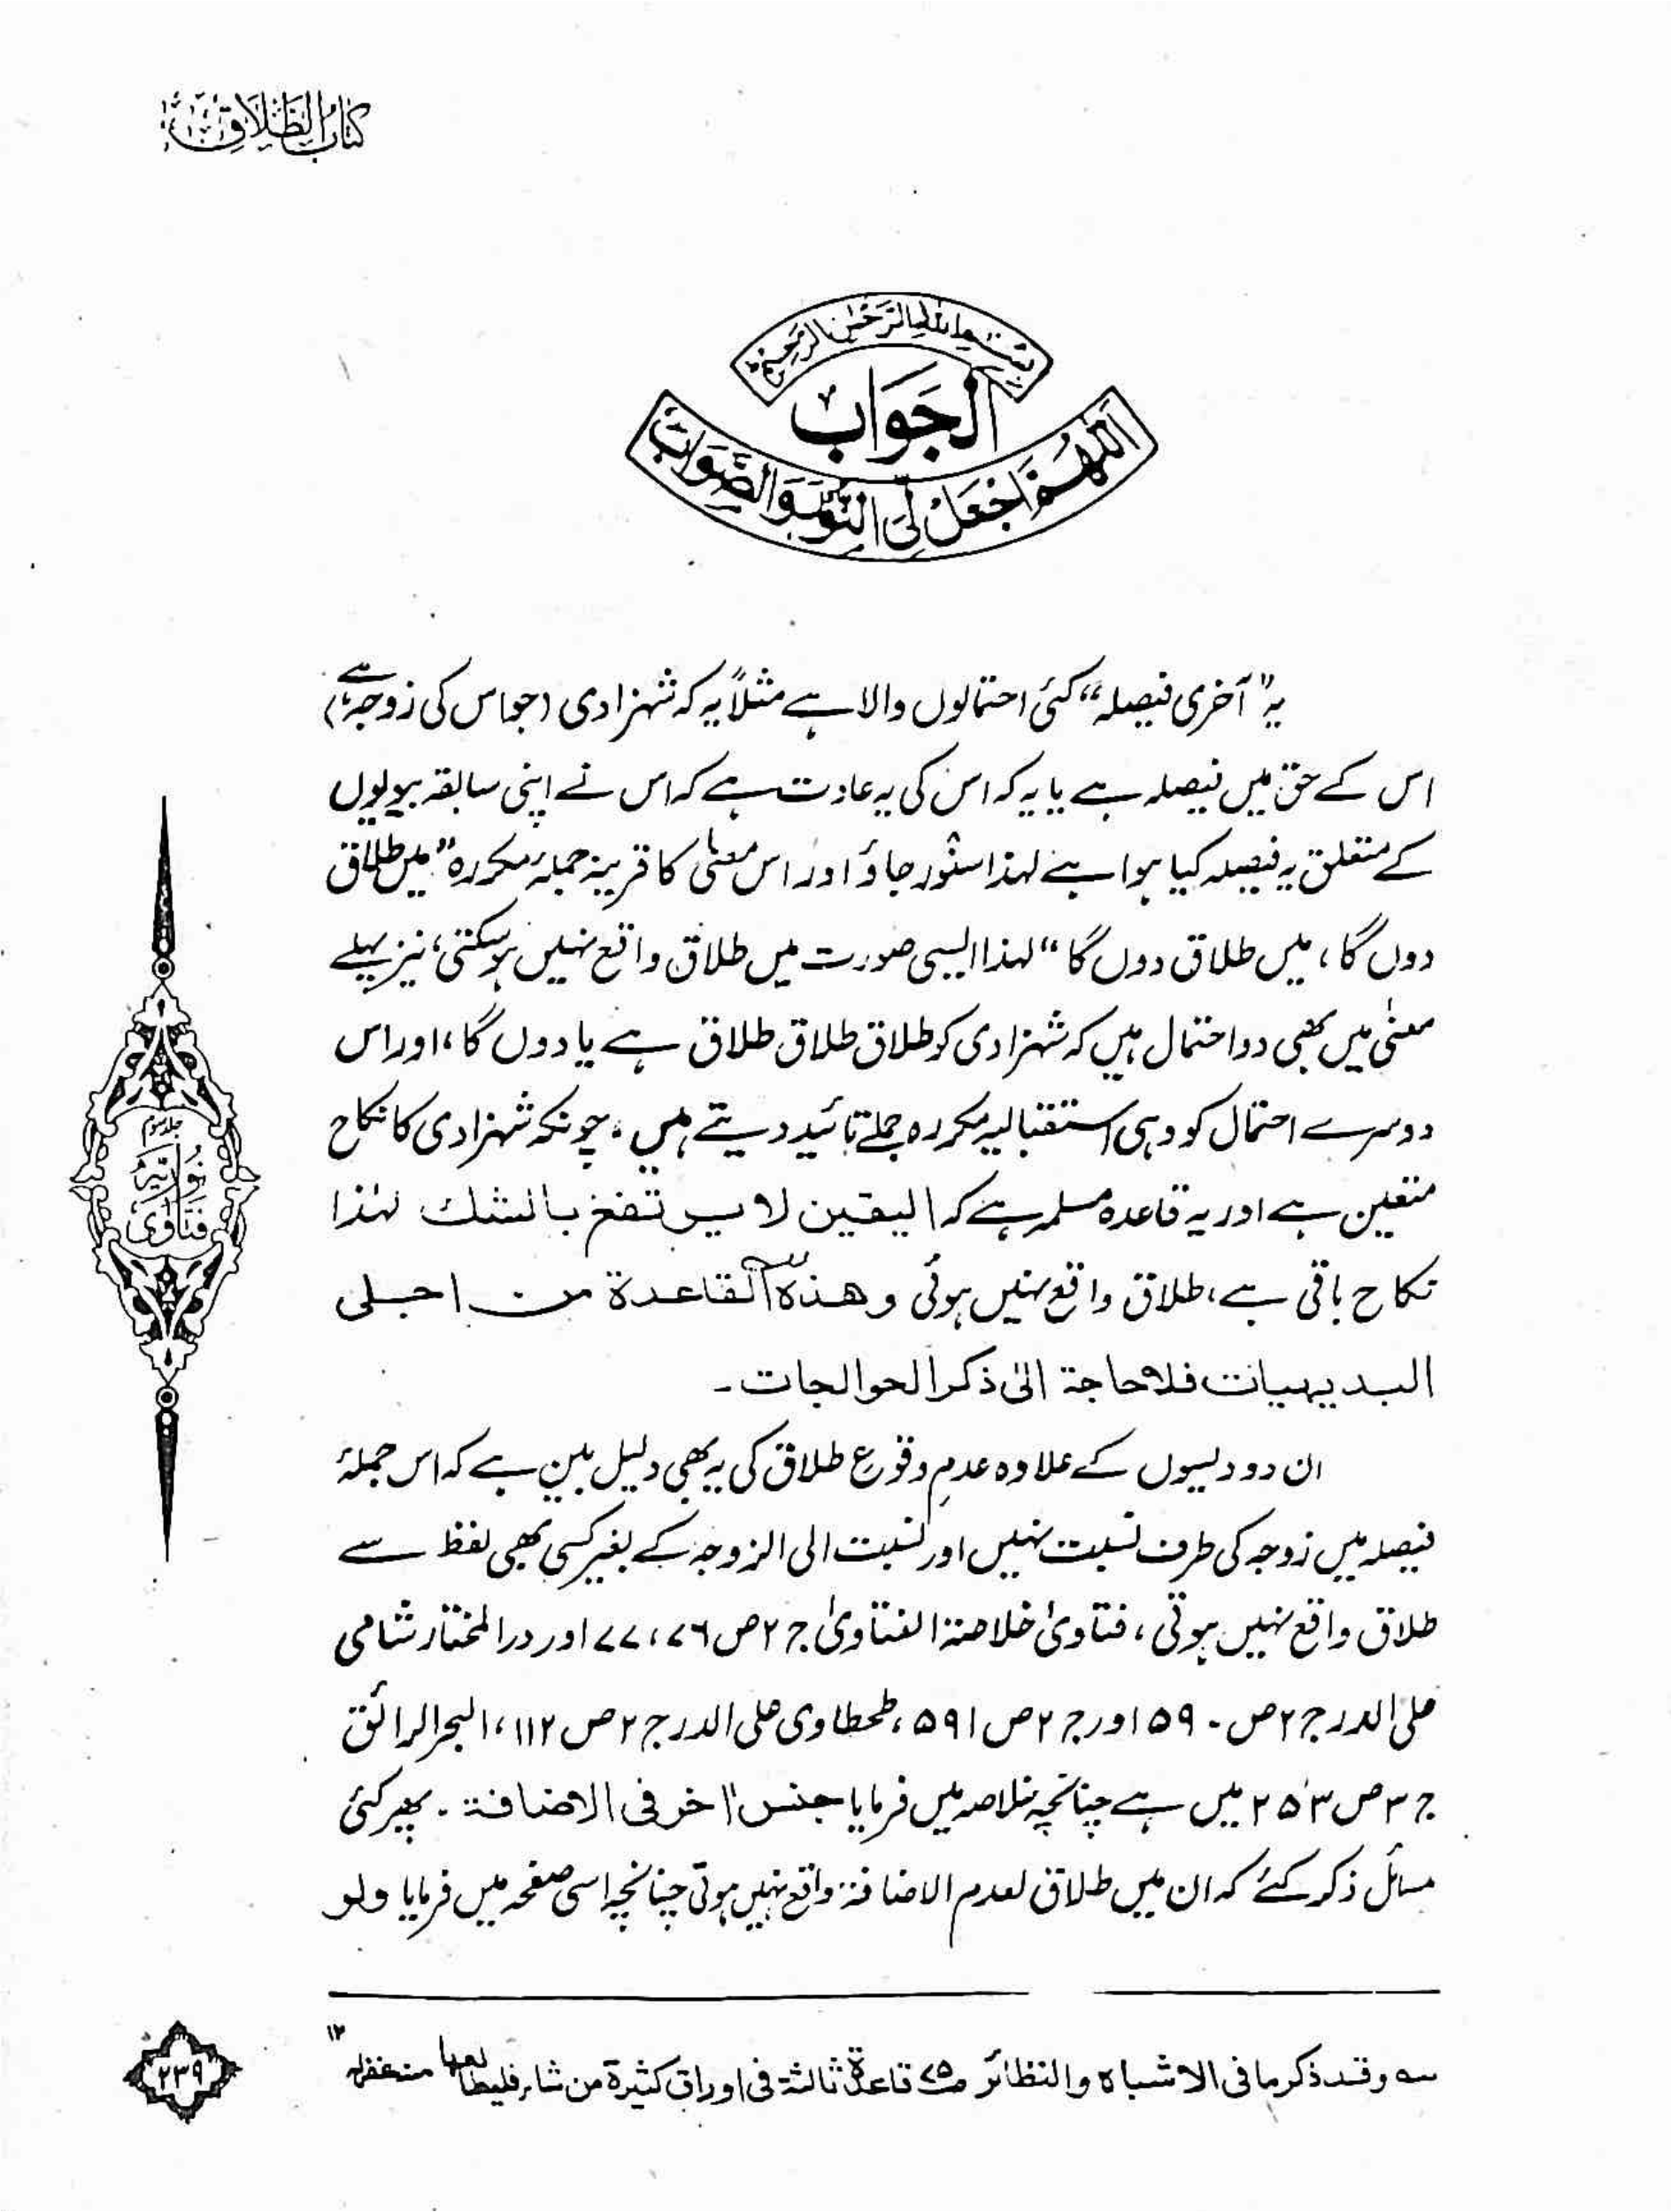 کتاب الطلاق
بسم الله الرحمن الرحيم
الجواب
اللهم اجعل لی النور والصواب
یہ "آخری فیصلہ" کئی احتمالوں والا ہے مثلاً یہ کہ شہزادی (جو اس کی زوجہ ہے)
اس کے حق میں فیصلہ ہے یا یہ کہ اس کی یہ عادت ہے کہ اس نے اپنی سابقہ بیویوں
کے متعلق یہ فیصلہ کیا ہوا ہے لہذا سنور جاؤ اور اس معنیٰ کا قرینہ جملہ مکررہ "میں طلاق
دوں گا، میں طلاق دوں گا" لہذا ایسی صورت میں طلاق واقع نہیں ہو سکتی، نیز پہلے
معنیٰ میں بھی دو احتمال ہیں کہ شہزادی کو طلاق طلاق طلاق ہے یا دوں گا، اور اس
دوسرے احتمال کو وہی استقبالیہ مکررہ جملے تائید دیتے ہیں، چونکہ شہزادی کا نکاح
متعین ہے اور یہ قاعدہ مسلمہ ہے کہ الیقین لا یرتفع بالشك لہٰذا
نکاح باقی ہے، طلاق واقع نہیں ہوئی وهذه القاعدة من اجلی
البدیهیات فلا حاجة الیٰ ذکر الحوالجات۔
ان دو دلیلوں کے علاوہ عدم وقوع طلاق کی یہ بھی دلیل بین ہے کہ اس جملۂ
فیصلہ میں زوجہ کی طرف نسبت نہیں اور نسبت الی الزوجہ کے بغیر کسی بھی لفظ سے
طلاق واقع نہیں ہوتی، فتاویٰ خلاصۃ الفتاویٰ ج ۲ ص ۷۶، ۷۷ اور درالمختار شامی
علی الدرر ج ۲ ص ۵۹۰ اور ج ۲ ص ۵۹۱، طحطاوی علی الدرر ج ۲ ص ۱۱۲، البحر الرائق
ج ۳ ص ۲۵۳ میں ہے چنانچہ خلاصہ میں فرمایا جنس اٰخر فی الاضافة۔ پھر کئی
مسائل ذکر کئے کہ ان میں طلاق لعدم الاضافۃ واقع نہیں ہوتی چنانچہ اسی صفحہ میں فرمایا ولو
سه وقد ذکرها فی الاشباہ والنظائر ص۷۵ قاعدة ثالثة فی اوراق کثیرة من شاء فلیطالعها منہ غفرلہ ۱۲
جلد سوم
فتاویٰ نوریہ
۲۳۹